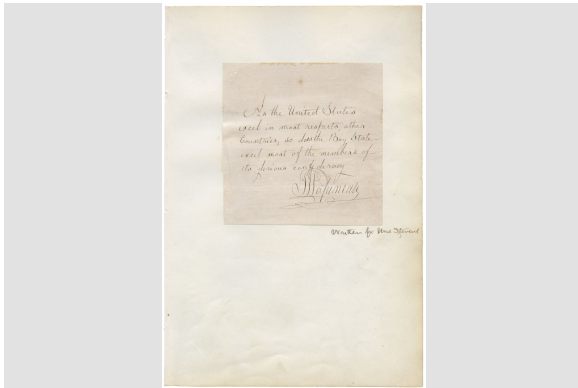 As the United States
excel in most respects, other
Countries, so does the Bay State
excel most of the members of
its glorious confederacy
Written for